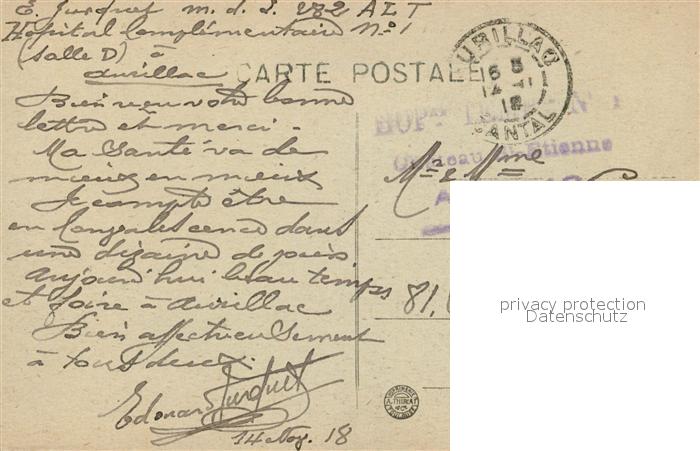 E. Turquet m. d. L. 282 ALT
Hôpital Complémentaire No 1
(Salle D) à
Aurillac
CARTE POSTALE
Bien reçu votre bonne
lettre et merci.
Ma santé va de
mieux en mieux
Je compte être
en Convalescence dans
une dizaine de jours
Aujourd'hui beau temps
et foire à Aurillac
Bien affectueusement
à tous deux.
Edouard Turquet
14 Nov. 18
AURILLAC
CANTAL
HOP
N° 1
St Etienne
Mr & Mme
81,
privacy protection
Datenschutz